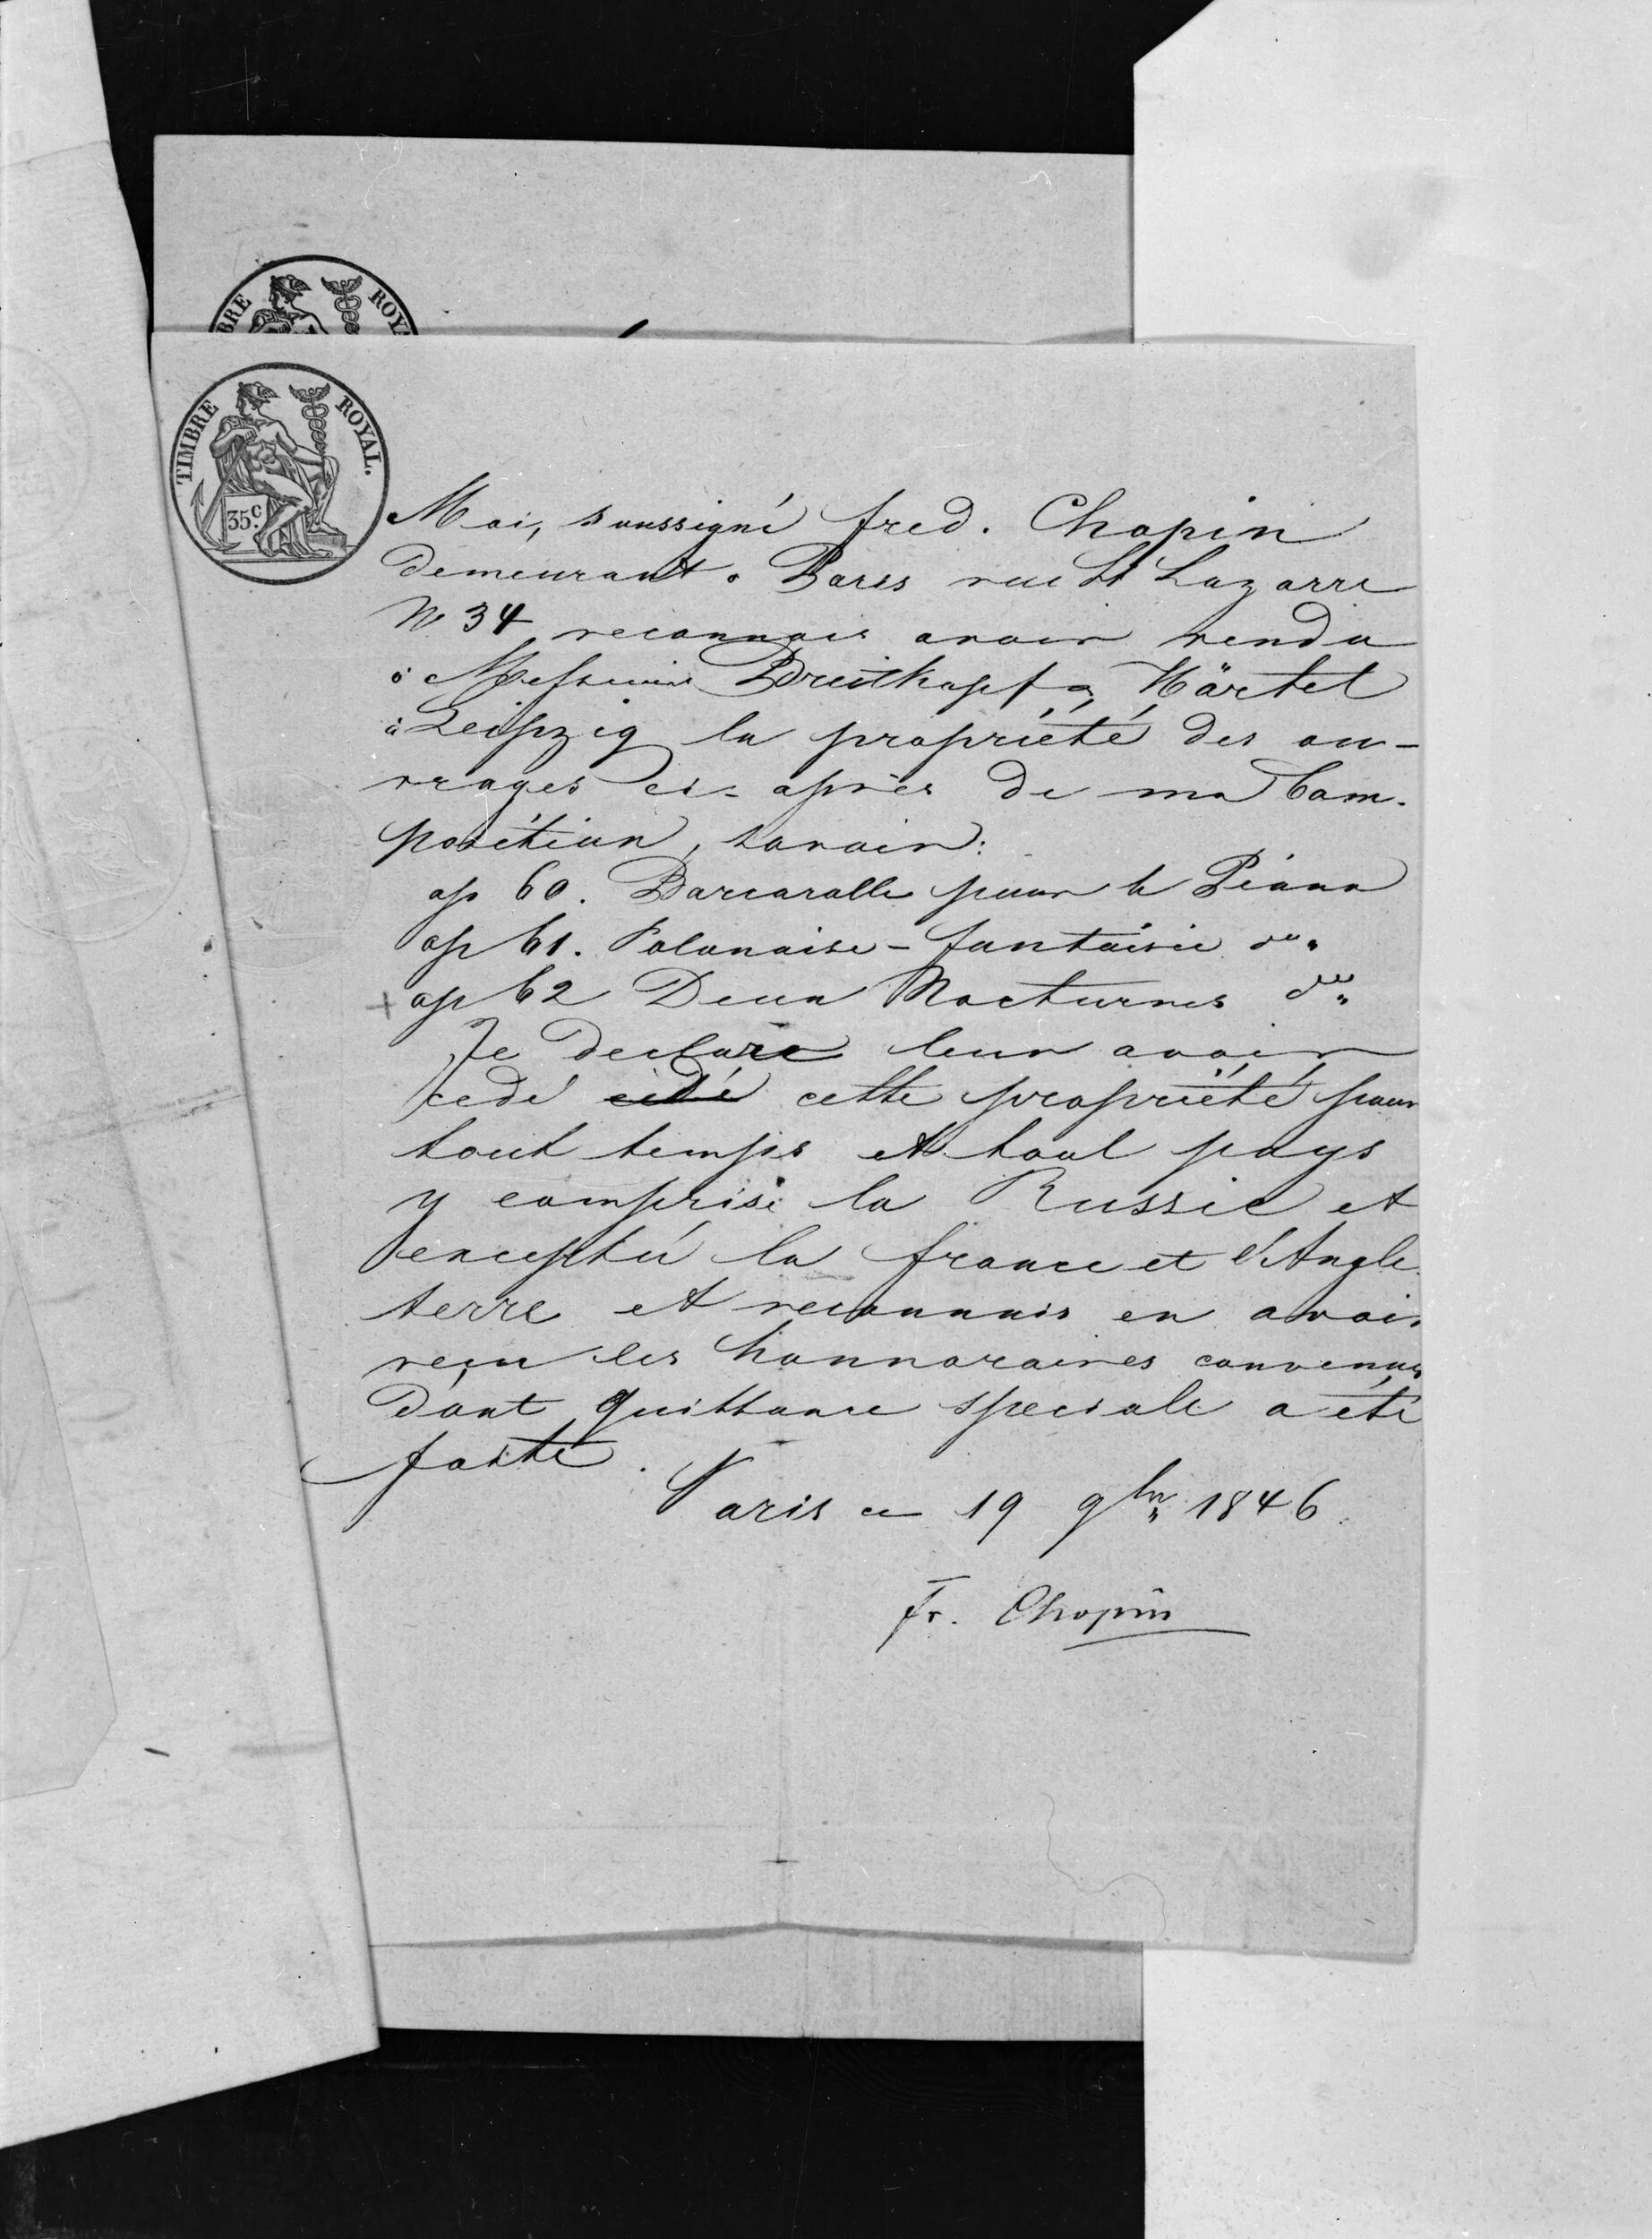 BRE ROYA
TIMBRE ROYAL.
35c.
Moi, soussigné fred. Chopin
demeurant à Paris rue St Lazarre
No 34 reconnais avoir vendu
à Messieurs Breitkopf & Härtel
à Leipzig la propriété des ou-
vrages ci-après de ma Com-
position, savoir:
op 60. Barcarolle pour le Piano
op 61. Polonaise-fantaisie do"
op 62 Deux Nocturnes do"
Je declare leur avoir
cedé cédé cette propriété pour
tout temps et tout pays
y compris la Russie et
excepté la france et l'Angle
terre et reconnais en avoir
reçu les honnoraires convenus
dont quittance speciale a été
faite.
Paris ce 19 9br 1846.
Fr. Chopin